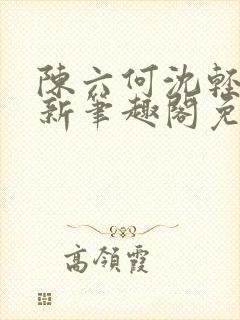 陳六何沈輕
新筆趣閣免
高領霞